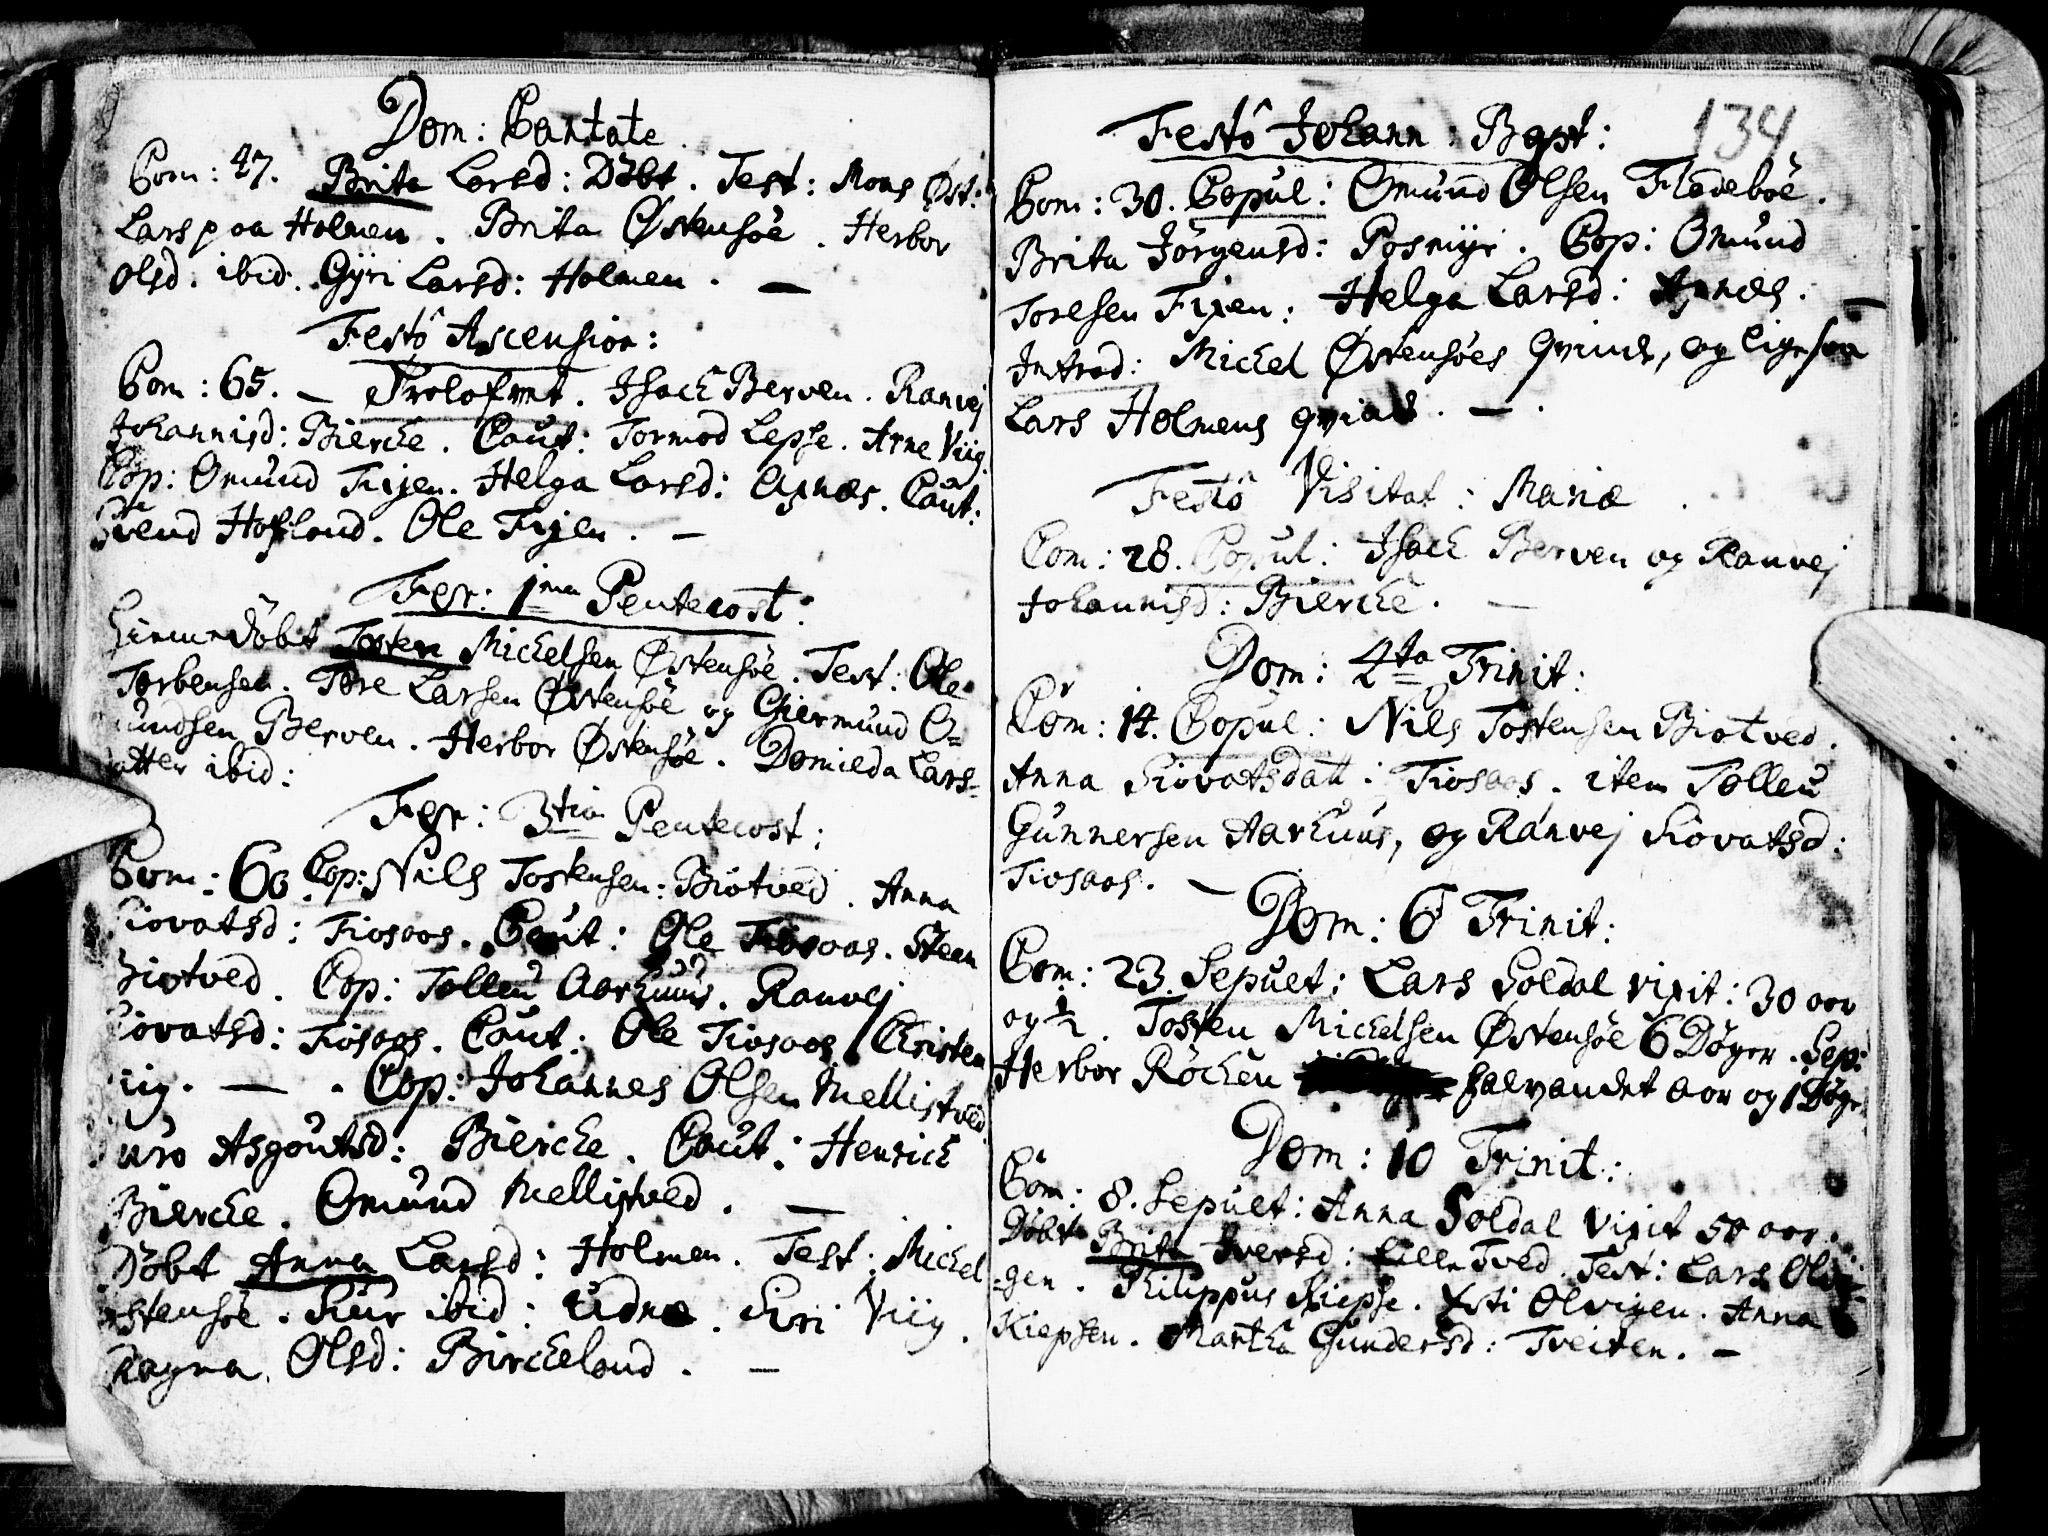 Dom: Cantate.
Com: 47. Brita Larsd: Döbt. Test: Mons Øst:
Lars paa Holmen. Brita Østensöe. Herbor
Olsd. ibid. Gÿri Larsd: Holmen. —
Festô Ascension:
Com: 65. — Trolof. Isack Berven. Ranvej
Johannisd: Biercke. Caut: Tormod Lepse. Arne Viig.
Cop: Omund Fixen. Helga Larsd: Axnæs. Caut:
Svend Hofland. Ole Fixen. —
Fer: 1ma Pentecost:
döbt Tosten Michelsen Østensöe. Test: Ole
Torbensen. Tore Larsen Østensöe og Giermund O=
mundsen Berven. Herbor Østensöe. Domieda Lars=
atter ibid:
Fer: 3tia Pentecost:
Com: 60. Cop: Nils Tostensen Biotved. Anna
Siovatsd: Tiosaas. Caut: Ole Tiosaas. Steen
Biotved. Cop: Tolleu Aarhuus. Ranvej
Siovatsd: Tiosaas. Caut: Ole Tiosaas Christen
Viig. — . Cop: Johannes Olsen Mellistved.
Guro Asgoutsd: Biercke. Caut: Henrick
Biercke. Omund Mellistved. —
Döbt Anna Larsd: Holmen. Test: Michel
Østensöe. Siur ibid: Udne. Siri Viig.
Ragna Olsd: Birckeland. —
134
Festô Johann: Bapt:
Com: 30. Copul: Omund Olsen Fladeböe.
Brita Jörgensd: Posmÿr. Cop: Omund
Toresen Fixen: Helga Larsd: Axnæs. —
Introd: Michel Østensöes Qvinde, og ligesaa
Lars Holmens qvinde. — .
Festô Visitat: Mariæ.
Com: 28. Copul: Isack Berven og Ranvej
Johannisd: Biercke. —
Dom: 4ta Trinit:
Com: 14. Copul: Nils Tostensen Biotved.
Anna Siovatsdatt: Tiosaas. item Tolleu
Gunnersen Aarhuus, og Ranvej Siovatsd:
Tiosaas. —
Dom: 6 Trinit:
Com: 23. Sepult: Lars Soldal vixit: 30 aar
og ½. Tosten Michelsen Østensöe 6 Döger. Sep:
Herbor Röcken halvandet aar og 1 Döger
Dom: 10 Trinit:
Com: 8. Sepult: Anna Soldal vixit 50 aar.
Döbt Brita Iversd: Lille Tved. Test: Lars Olvi=
=gen. Philippus Kiepse. Xsti Olvigen. Anna
Kiepsen. Martha Gundersd: Tveiten. —